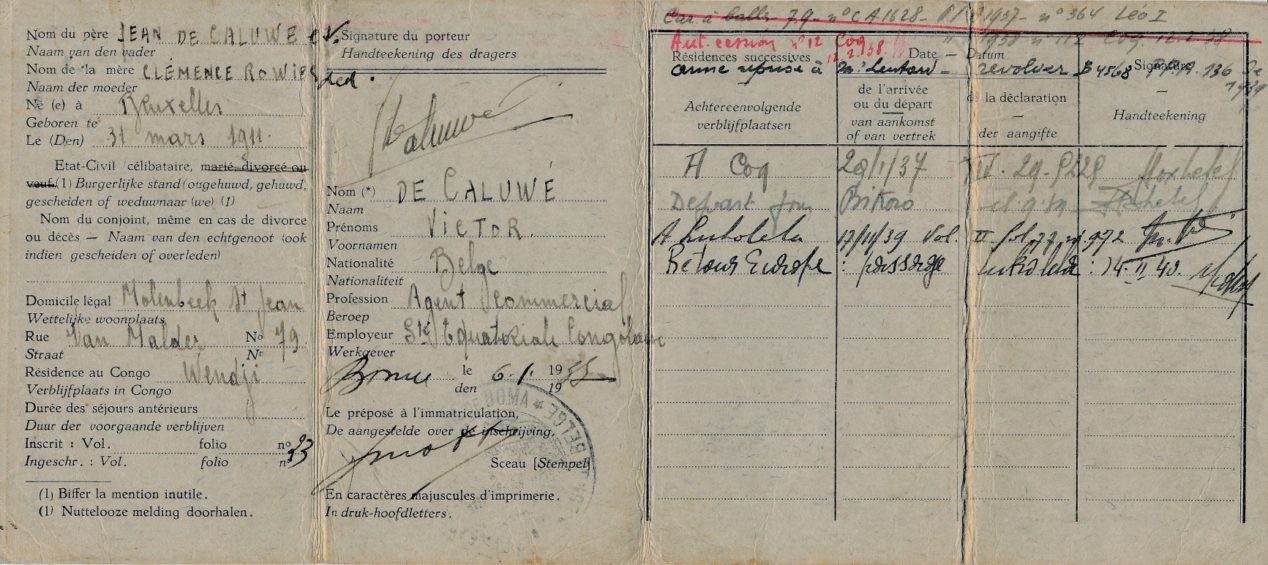 Nom du père JEAN DE CALUWE
Naam van den vader
Nom de la mère CLÉMENCE ROWIES
Naam der moeder
Né (e) à Bruxelles
Geboren te
Le (Den) 31 mars 1911
Etat-Civil célibataire, marié, divorcé ou
veuf.(1) Burgerlijke stand (ougehuwd, gehuwd,
gescheiden of weduwnaar (we) (1)
Nom du conjoint, même en cas de divorce
ou décès — Naam van den echtgenoot (ook
indien gescheiden of overleden)
Domicile légal Molenbeek St Jean
Wettelijke woonplaats
Rue Van Malder No 79
Straat Nr
Résidence au Congo Wendji
Verblijfplaats in Congo
Durée des séjours antérieurs
Duur der voorgaande verblijven
Inscrit : Vol. folio no 93
Ingeschr. : Vol. folio n
(1) Biffer la mention inutile.
(1) Nuttelooze melding doorhalen.
Signature du porteur
Handteekening des dragers
Decaluwé
Nom (*) DE CALUWÉ
Naam
Prénoms VICTOR.
Voornamen
Nationalité Belge
Nationaliteit
Profession Agent Commercial
Beroep
Employeur Sté Equatoriale Congolaise
Werkgever
Boma le 6.1. 19
den 19
Le préposé à l'immatriculation,
De aangestelde over de inschrijving.
Sceau [Stempel]
BELGE
BOMA
En caractères majuscules d'imprimerie.
In druk-hoofdletters.
à balle 79 - no CA1628 - 1937 - no 364 Léo I
Aut. cession no 12 Coq
12.2.1938
Résidences successives
Date — Datum
Signature
revolver B 4568 136
1939
Achtereenvolgende
verblijfplaatsen
de l'arrivée
ou du départ
van aankomst
of van vertrek
de la déclaration
—
der aangifte
—
Handteekening
A Coq 29/1/37
Depart pour Bikoro
A Lukolela 17/11/39 Vol. II fol. 77 no 992
Retour Europe : passage Lukolela : 14.II.40.